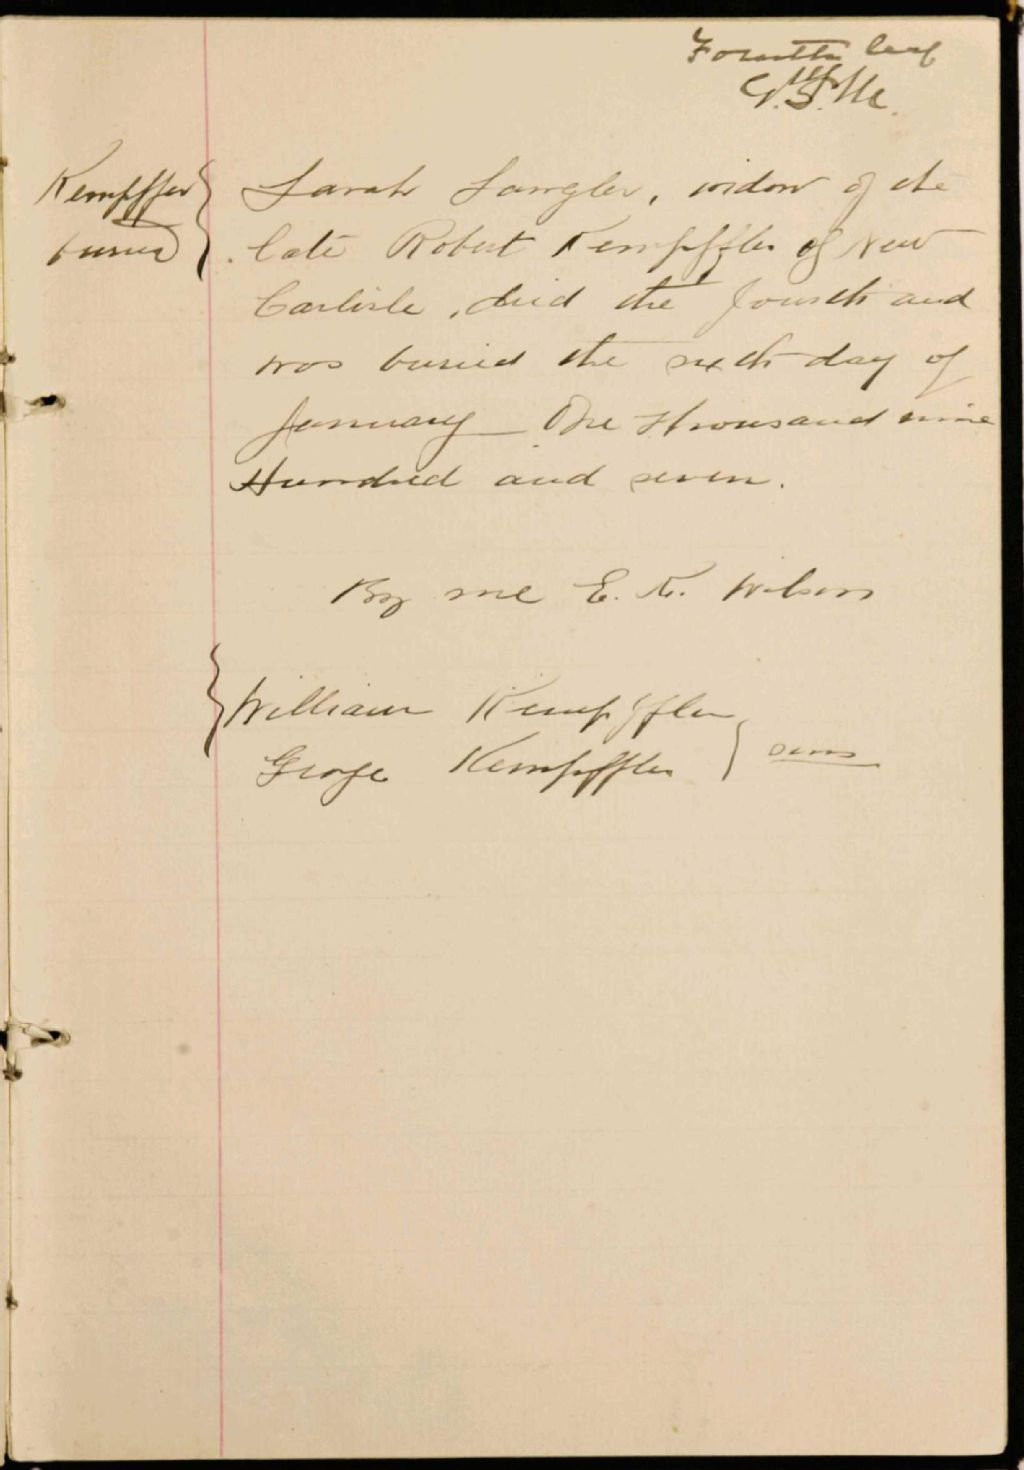 Fourth leaf
Kempffer
buried
Sarah Sawyler, widow of the
late Robert Kempffler of New
Carlisle, died the fourth and
was buried the sixth day of
January One thousand nine
Hundred and seven.
By me E. K. Wilson
William Kempffler
George Kempffler
sons